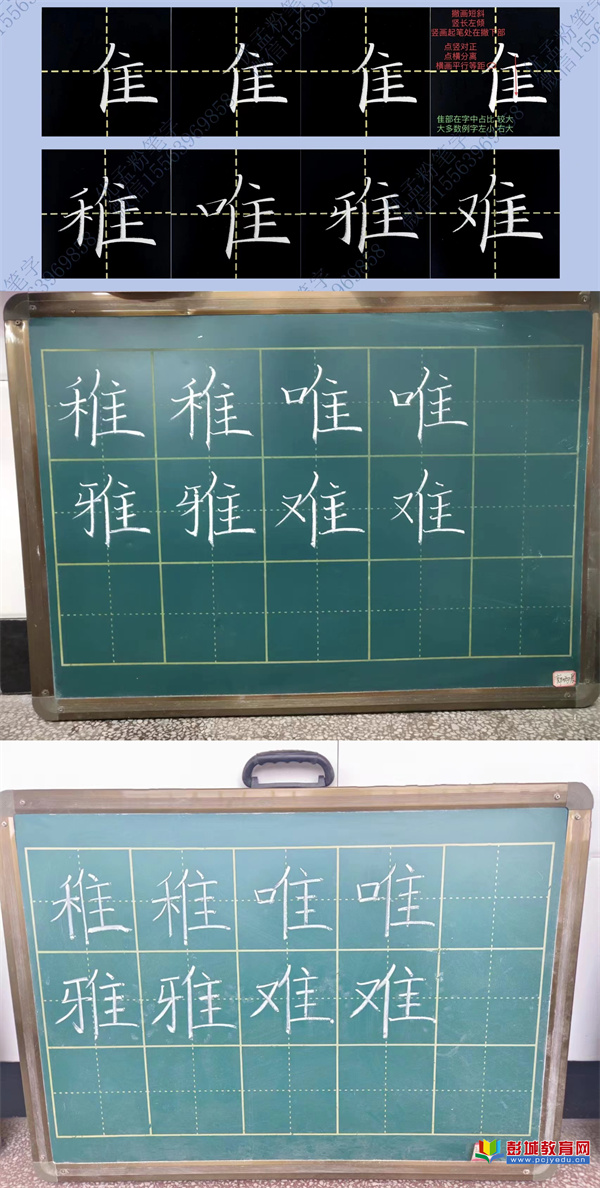 撇画短斜
竖长左倾
竖画起笔处在撇下部
隹 隹 隹 隹
点竖对正
点横分离
横画平行等距
隹部在字中占比较大
大多数例字左小右大
稚 唯 雅 难
稚 稚 唯 唯
雅 雅 难 难
稚 稚 唯 唯
雅 雅 难 难
彭城教育网
www.pcjyedu.cn